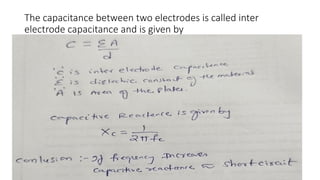 The capacitance between two electrodes is called inter
electrode capacitance and is given by
C = ε A
d
'c' is inter electrode capacitence
'ε' is dielectric constant of the material
'A' is Area of the plates.
capacitive Reactence is given by
Xc = 1
2πfc
conclusion :- If frequency Increases
capacitive reactance ∞ short circuit